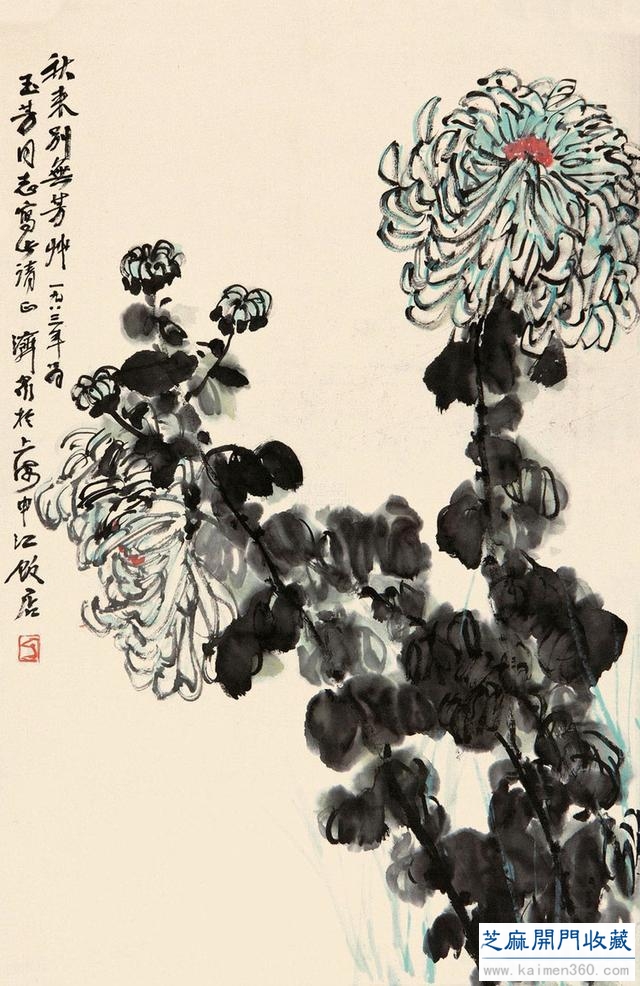 秋来别無芳艸 一九八三年为
玉芳同志寫此請正 濟众於上海申江飯店
方
芝麻開門收藏
www.kaimen360.com